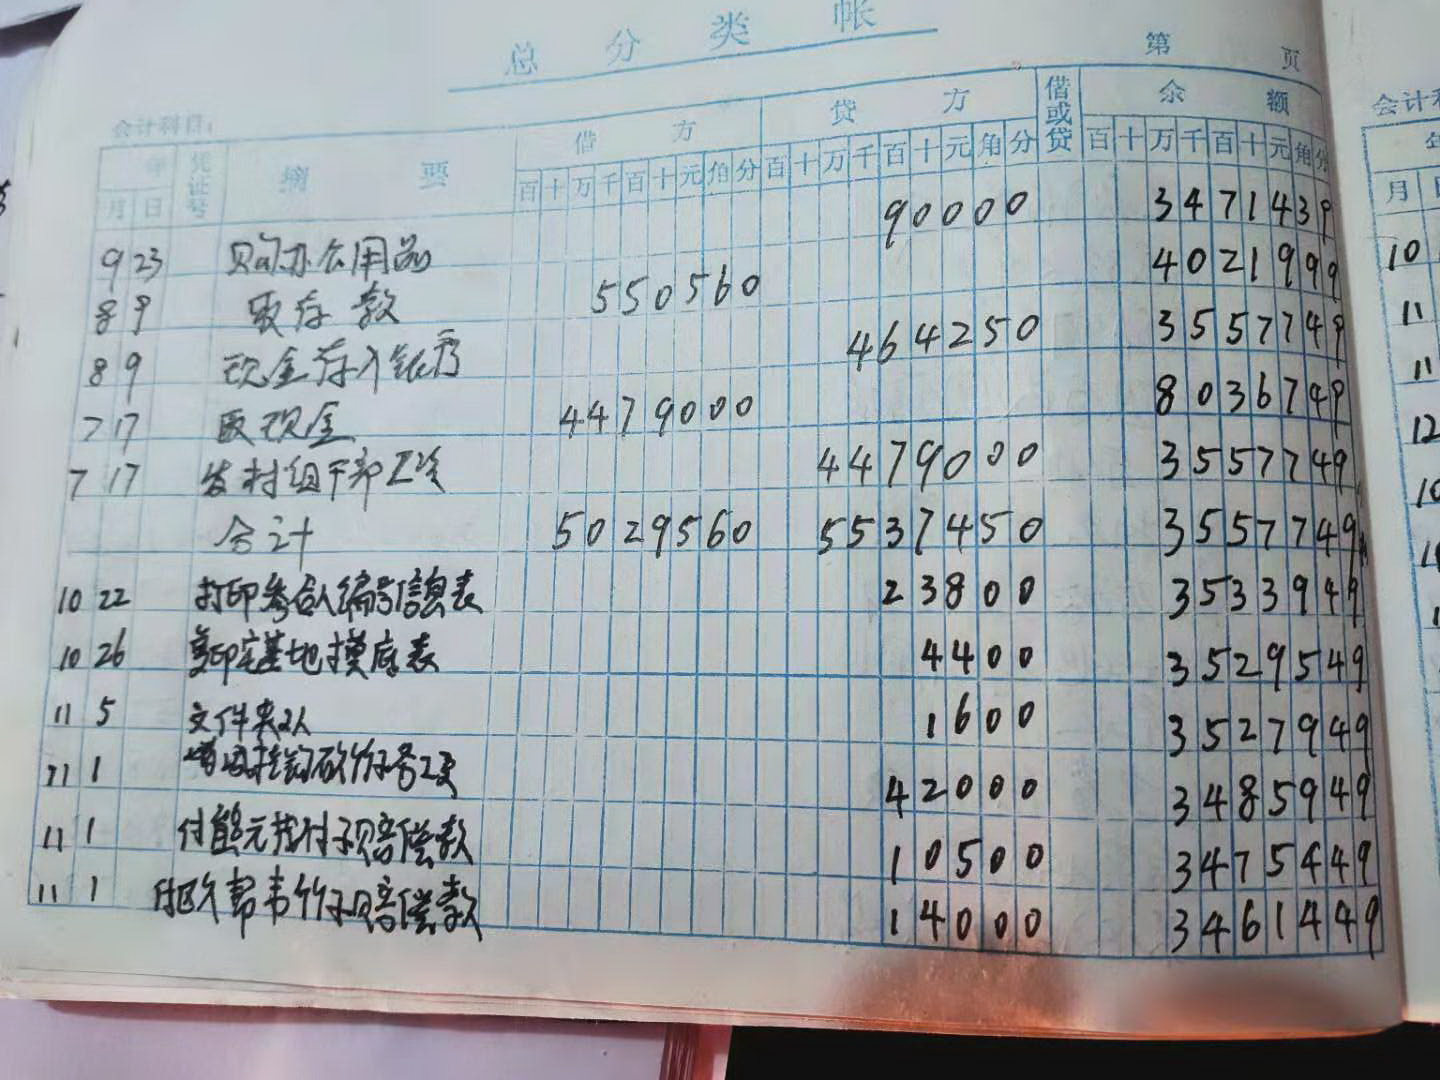 总 分 类 帐
第 页
会计科目:
年 凭证号 摘 要 借 方 贷 方 借或贷 余 额
月 日 百十万千百十元角分 百十万千百十元角分 百十万千百十元角分
9 23 购办公用品 90000 3471439
8 9 取存款 550560 4021999
8 9 现金存入银行 464250 3557749
7 17 取现金 4479000 8036749
7 17 发村组干部工资 4479000 3557749
合计 5029560 5537450 3557749
10 22 打印参合人编号信息表 23800 3533949
10 26 复印宅基地摸底表 4400 3529549
11 5 文件夹2个 1600 3527949
11 1 42000 3485949
11 1 付熊元 赔偿款 10500 3475449
11 1 付欧 竹子赔偿款 14000 3461449
会计科
年
月
10
11
11
12
10